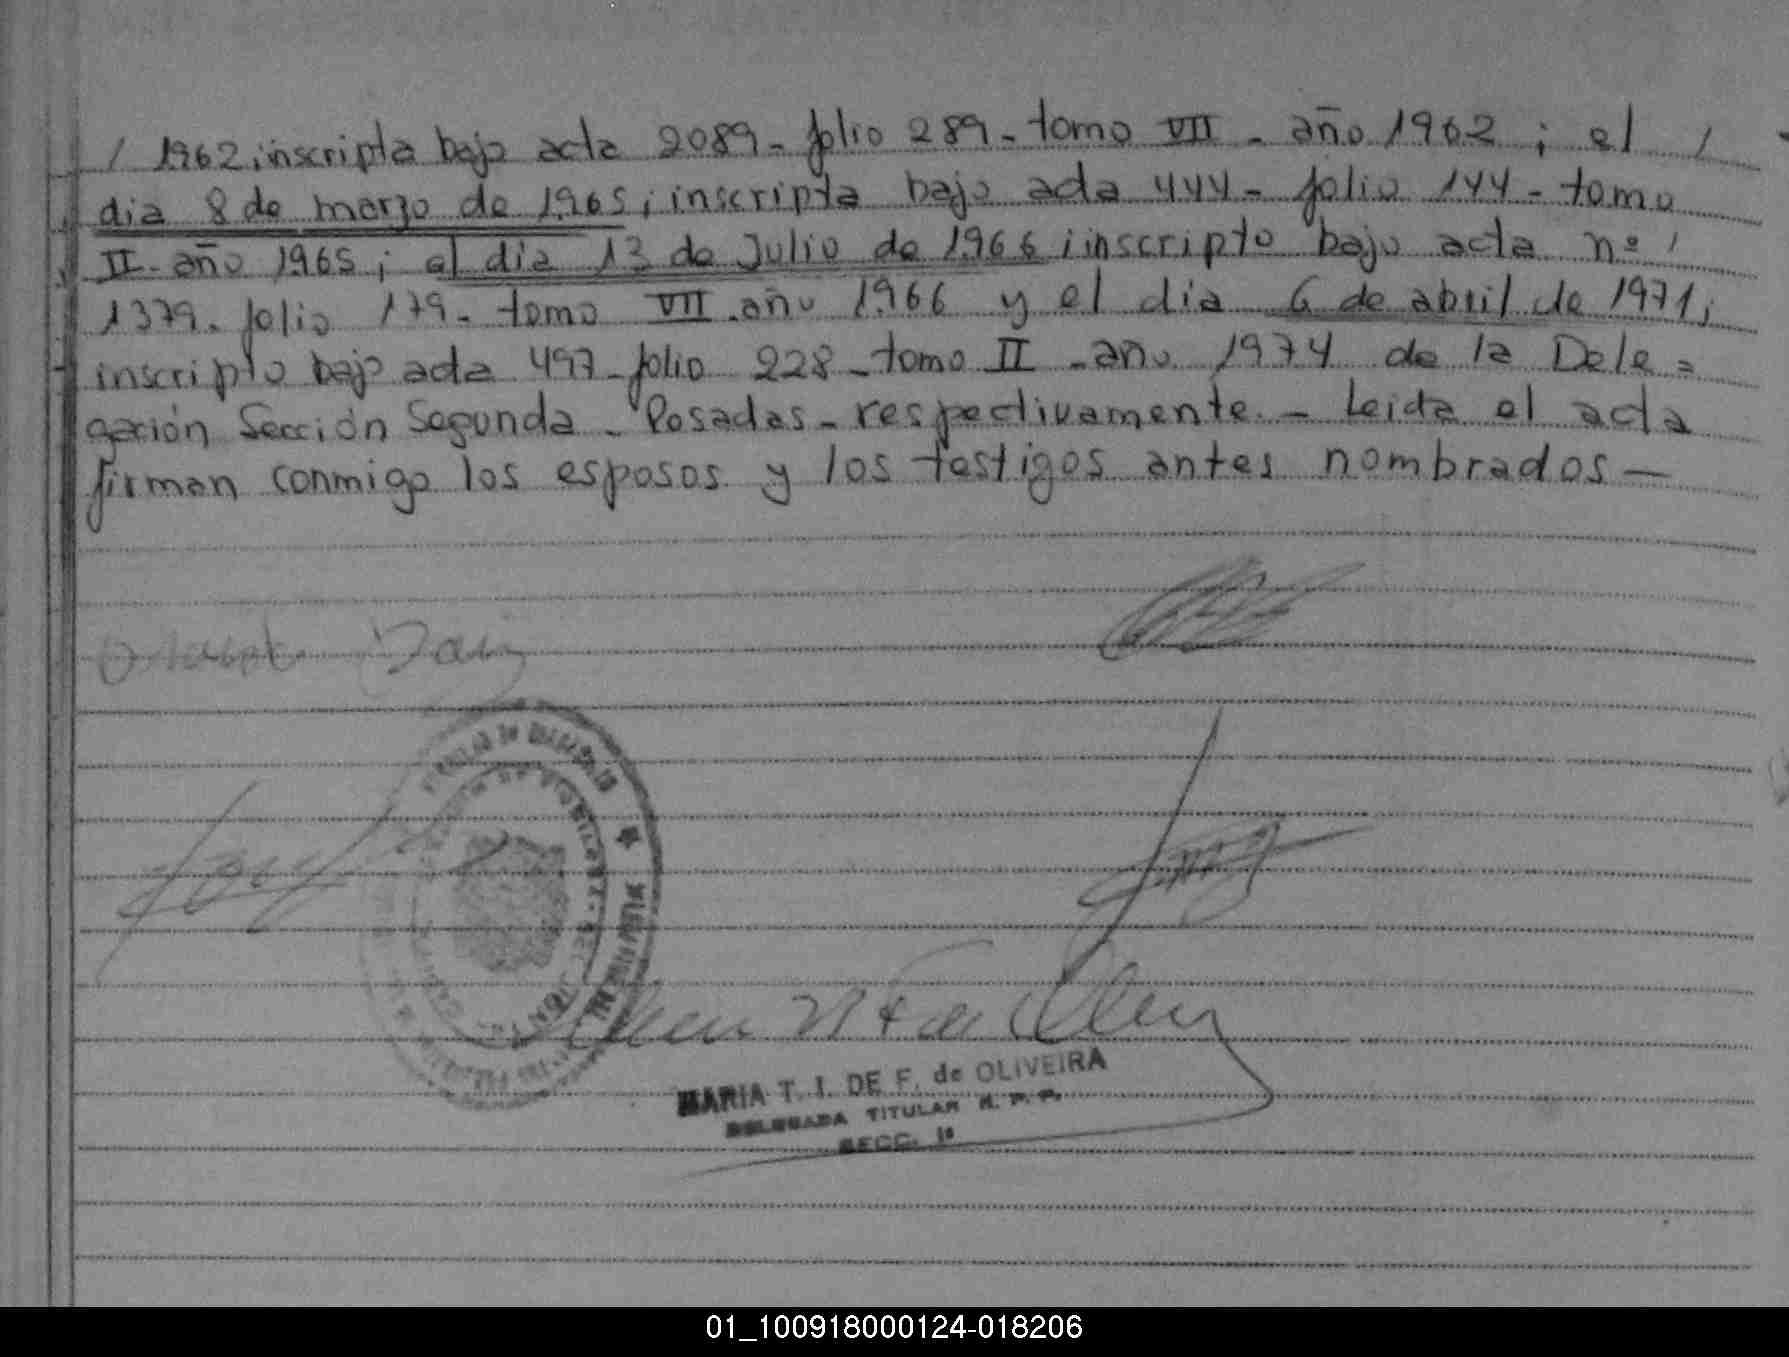 / 1962, inscripta bajo acta 2089 - folio 289 - tomo VII - año 1962 ; el /
dia 8 de marzo de 1965 ; inscripta bajo acta 444 - folio 144 - tomo
II - año 1965 ; el dia 13 de Julio de 1966 ; inscripto bajo acta nº /
1379 - folio 179 - tomo VII - año 1966 y el dia 6 de abril de 1971 ;
inscripto bajo acta 497 - folio 228 - tomo II - año 1974 de la Dele =
gación Sección Segunda - Posadas - respectivamente. - Leida el acta
firman conmigo los esposos y los testigos antes nombrados —
MARIA T. I. DE F. de OLIVEIRA
DELEGADA TITULAR R. P. P.
SECC. 1ª
01_100918000124-018206